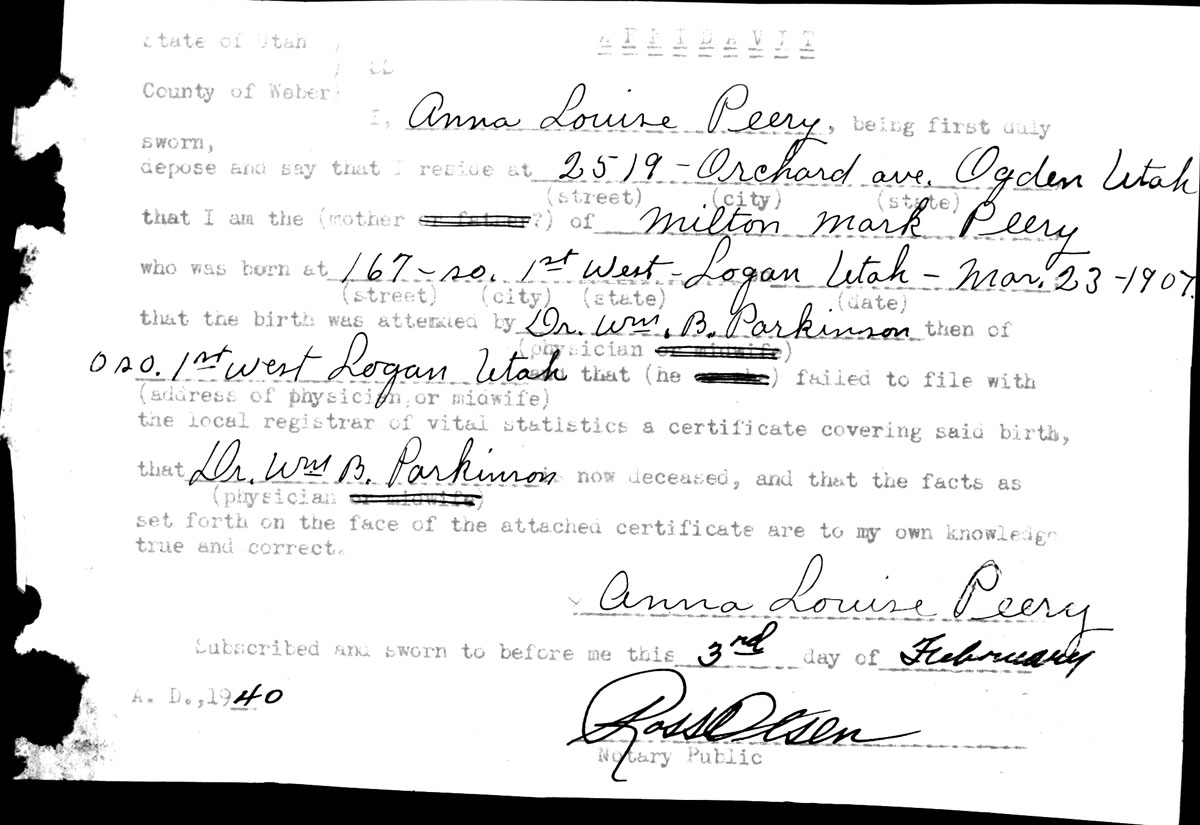 State of Utah ) A F F I D A V I T
) SS
County of Weber)
I, Anna Louise Peery, being first duly
sworn,
depose and say that I reside at 2519 - Orchard ave. Ogden Utah
(street) (city) (state)
that I am the (mother or father?) of Milton Mark Peery
who was born at 167 - so. 1st West - Logan Utah - Mar. 23 - 1907.
(street) (city) (state) (date)
that the birth was attended by Dr. Wm. B. Parkinson then of
(physician or midwife)
0 so. 1st West Logan Utah and that (he ) failed to file with
(address of physician or midwife)
the local registrar of vital statistics a certificate covering said birth,
that Dr. Wm B. Parkinson is now deceased, and that the facts as
(physician or midwife)
set forth on the face of the attached certificate are to my own knowledge
true and correct.
Anna Louise Peery
Subscribed and sworn to before me this 3rd day of February
A. D., 1940
Ross Olsen
Notary Public